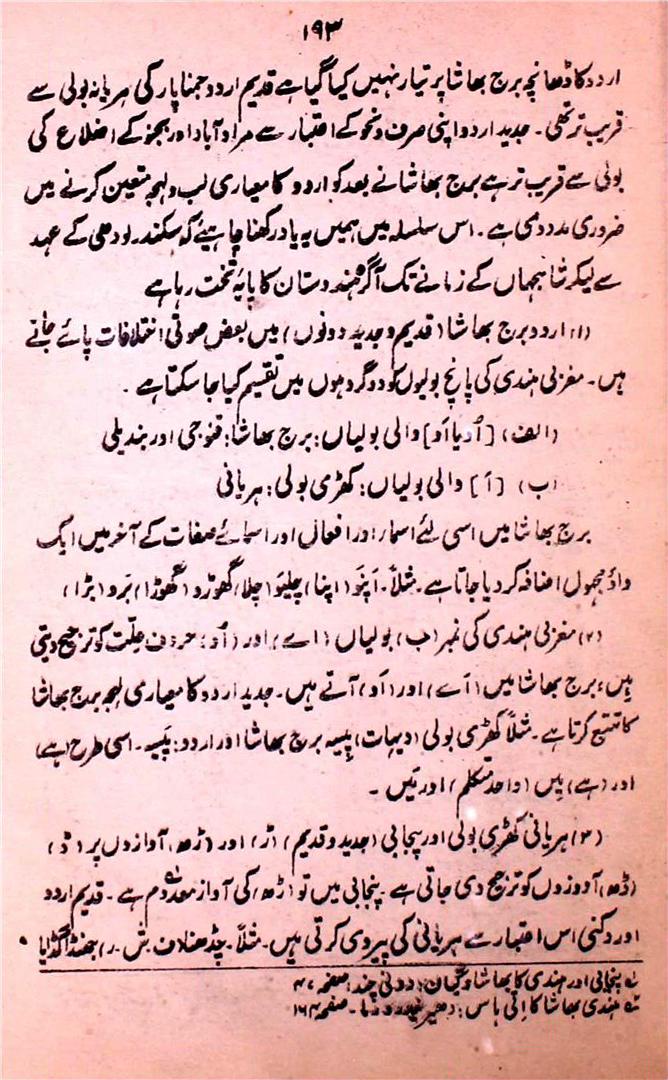 ۱۹۳
اردو کا ڈھانچہ برج بھاشا پر تیار نہیں کیا گیا ہے قدیم اردو جمنا پار کی ہریانہ بولی سے
قریب تر تھی۔ جدید اردو اپنی صرف و نحو کے اعتبار سے مراد آباد اور بجنور کے اضلاع کی
بولی سے قریب تر ہے برج بھاشا نے بعد کو اردو کا معیاری لب و لہجہ متعین کرنے میں
ضروری مدد دی ہے۔ اس سلسلہ میں ہمیں یہ یاد رکھنا چاہیئے کہ سکندر لودھی کے عہد
سے لیکر شاہجہاں کے زمانے تک آگرہ ہندوستان کا پایۂ تخت رہا ہے
(۱) اردو برج بھاشا (قدیم و جدید دونوں) میں بعض صوتی اختلافات پائے جاتے
ہیں۔ مغربی ہندی کی پانچ بولیوں کو دو گروہوں میں تقسیم کیا جا سکتا ہے۔
(الف) [اُو یا اَو] والی بولیاں: برج بھاشا: قنوجی اور بندیلی
(ب) [اَ] والی بولیاں: کھڑی بولی: ہریانی
برج بھاشا میں اسی لئے اسماء اور افعال اور اسمائے صفات کے آخر میں ایک
واؤ مجہول اضافہ کر دیا جاتا ہے۔ مثلاً۔ اَپنَو (اپنا) چلیَو (چلا) گھوڑو (گھوڑا) بَرو (بڑا)
(۲) مغربی ہندی کی نمبر (ب) بولیاں (اے) اور (اُو) حروف علّت کو ترجیح دیتی
ہیں، برج بھاشا میں (اَے) اور (اَو) آتے ہیں۔ جدید اردو کا معیاری لہجہ برج بھاشا
کا تتبع کرتا ہے۔ مثلاً کھڑی بولی (دیہات) پیسہ برج بھاشا اور اردو: پَیسہ۔ اسی طرح (ہے)
اور (ہے) میں (واحد متکلم) اور تیں۔
(۳) ہریانی کھڑی بولی اور پنجابی (جدید و قدیم) (ڑ) اور (ڑھ) آوازوں پر (ڈ)
(ڈھ) آوازوں کو ترجیح دی جاتی ہے۔ پنجابی میں تو (ڑھ) کی آواز معدوم ہے۔ قدیم اردو
اور دکنی اس اعتبار سے ہریانی کی پیروی کرتی ہیں۔ مثلاً۔ چڈھنا ف۔ ش۔ ر) جھنڈا گڈایا
؎ پنجابی اور ہندی کا بھاشا وگیان: دونی چند: صفحہ ۴۷
؎ ہندی بھاشا کا اتی ہاس: دھیریندر ورما۔ صفحہ ۱۶۴